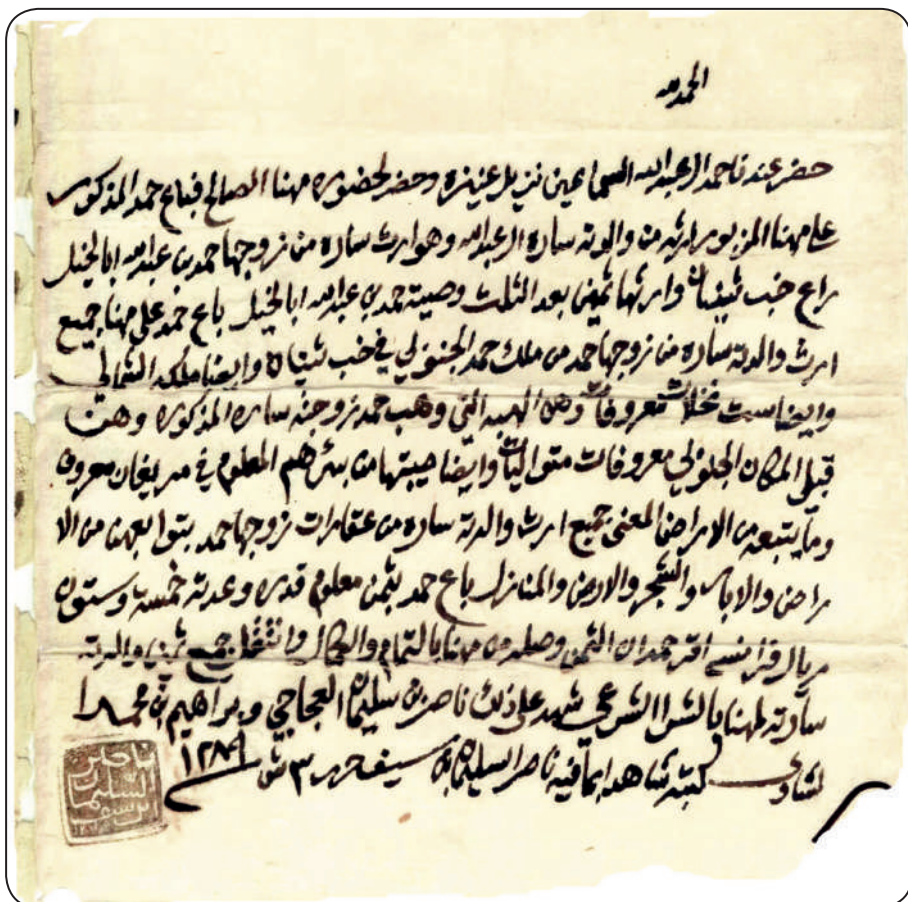 الحمد لله
حضر عندنا حمد العبد الله السماعيل نزيل عنيزه وحضر لحضوره مهنا الصالح فباع حمد المذكور
على مهنا المزبور ارثه من والدته ساره العبد الله وهو ارث ساره من زوجها حمد بن عبد الله ابا الخيل
راع خب ثنيان وارثها ثمين بعد الثلث وصية حمد بن عبد الله ابا الخيل باع حمد على مهنا جميع
ارث والدته ساره من زوجها حمد من ملك حمد الجنوبي في خب ثنيان وايضا ملكه الشمالي
وايضا ست نخلات معروفات وهن الهبه التي وهب حمد زوجته ساره المذكوره وهن
قبل المكان معروفات متواليات وايضا صيبتها من بئرهم المعلوم في مريغان معروف
وما يتبعه من الاراض المعنى جميع ارث والدته ساره من عقارات زوجها حمد بتوابعهن من الا
راض والابار والشجر والارض والمنازل باع حمد بثمن معلوم قدره وعدته خمسة وستون
ريال فرانسه اقر حمد ان الثمن وصله من مهنا بالتمام والكمال وانتقل جميع ثمين والدته
سارته لمهنا بالشرا الشرعي شهد على ذلك ناصر بن سليمان العجاجي وبراهيم بن محمد ا
لشاوي كتبه شاهد ابما فيه ناصر السليمان بن سيف حرر ٣ ش ١٢٨٩
ناصر
السليمان
بن سيف